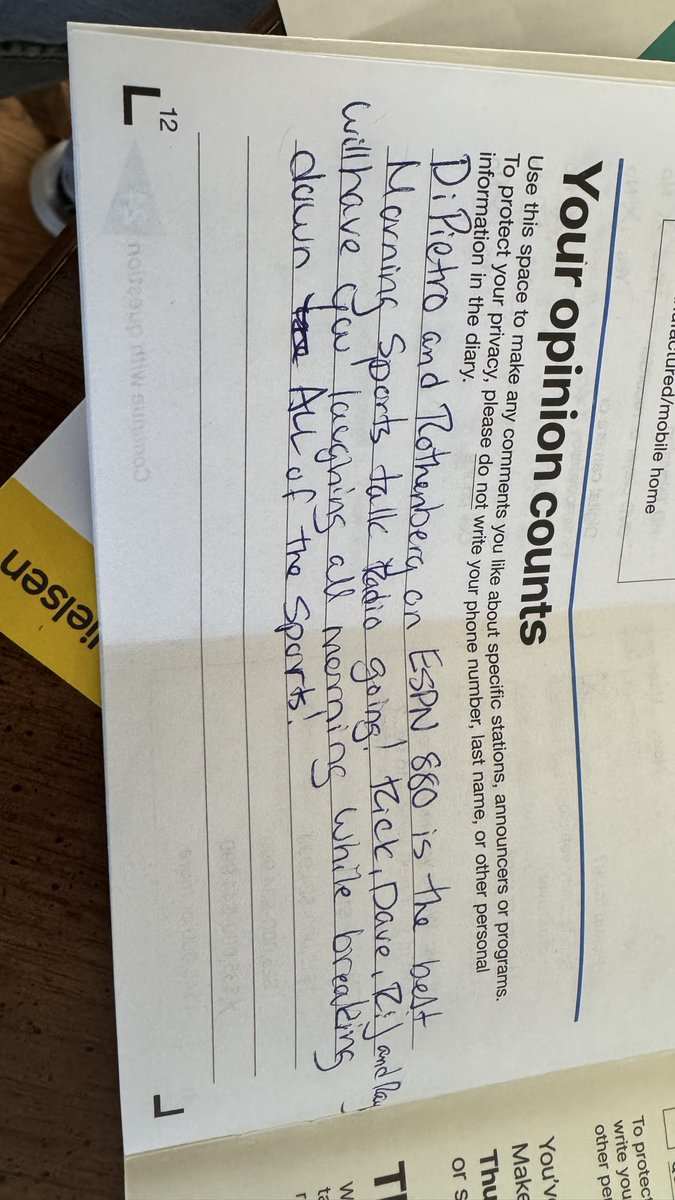 nufactured/mobile home
Your opinion counts
Use this space to make any comments you like about specific stations, announcers or programs.
To protect your privacy, please do not write your phone number, last name, or other personal
information in the diary.
DiPietro and Rothenberg on ESPN 880 is the best
Morning Sports talk Radio going! Rick, Dave, RJ and Ray
will have you laughing all morning while breaking
down ALL of the sports!
12
Continue with question
ielsen
You'v
Make
Thu
or s
To protec
write you
other per